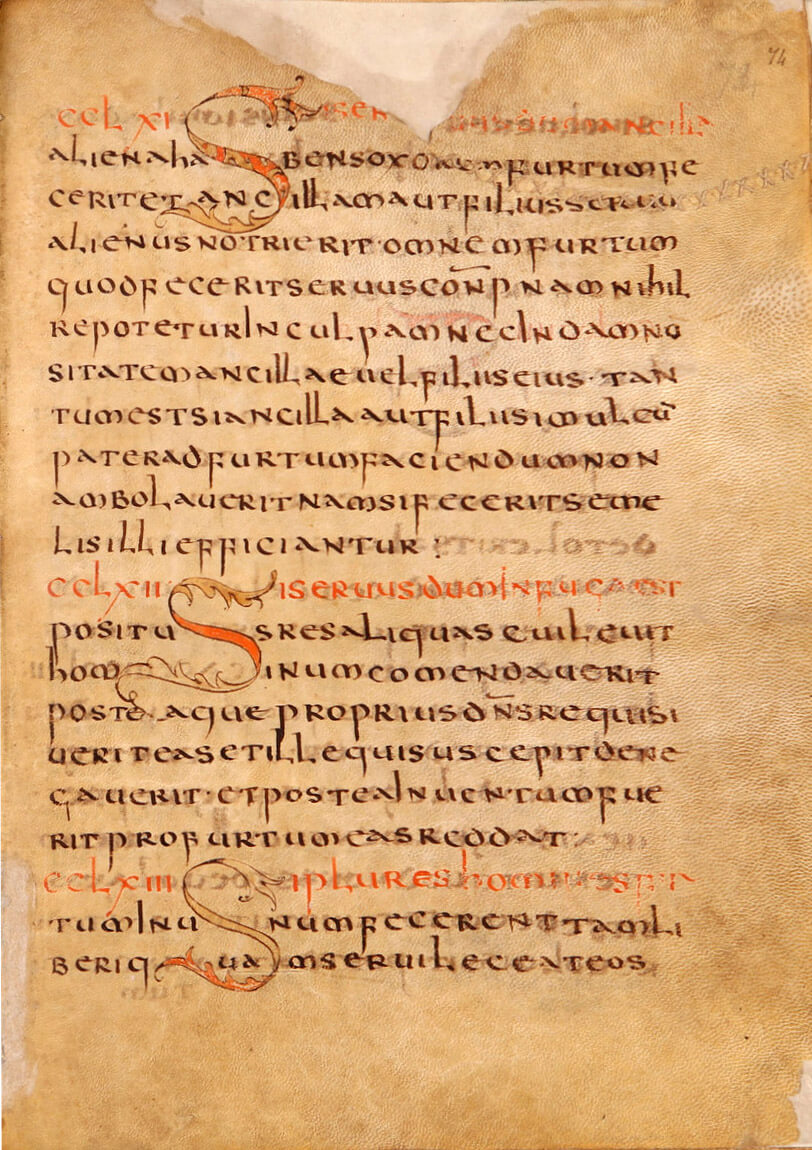 74
CCLXI SISER ANCILLA
ALIENAHABENSOXOREMFURTUMFE
CERITETANCILLAMAUTFILIUSSERUU
ALIENUSNOTRIERIT·OMNEMFURTUM
QUODFECERITSERUUSCŌNPNAMNIHIL
REPOTETURINCULPAMNECINDAMNO
SITATEMANCILLAEUELFILIISEIUS·TAN
TUMESTSIANCILLAAUTFILIISIMULCŪ
PATERADFURTUMFACIENDUMNON
AMBOLAUERITNAMSIFECERITSEME
LISILLIEFFICIANTUR:
CCLXII SISERUUSDUMINFUGAEST
POSITUSSRESALIQUASCUILEUIT
HOMINUMCOMENDAUERIT
POSTEAQUEPROPRIUSDN̄SREQUISI
UERITEASETILLEQUISUSCEPITDENE
GAUERIT·ETPOSTEAINUENTUMFUE
RITPROFURTUMEASREDDAT·
CCLXIII SIPLURESHOMINES
TUMINUNUMFECERENTTAMLI
BERIQUAMSERUILECEATEOS